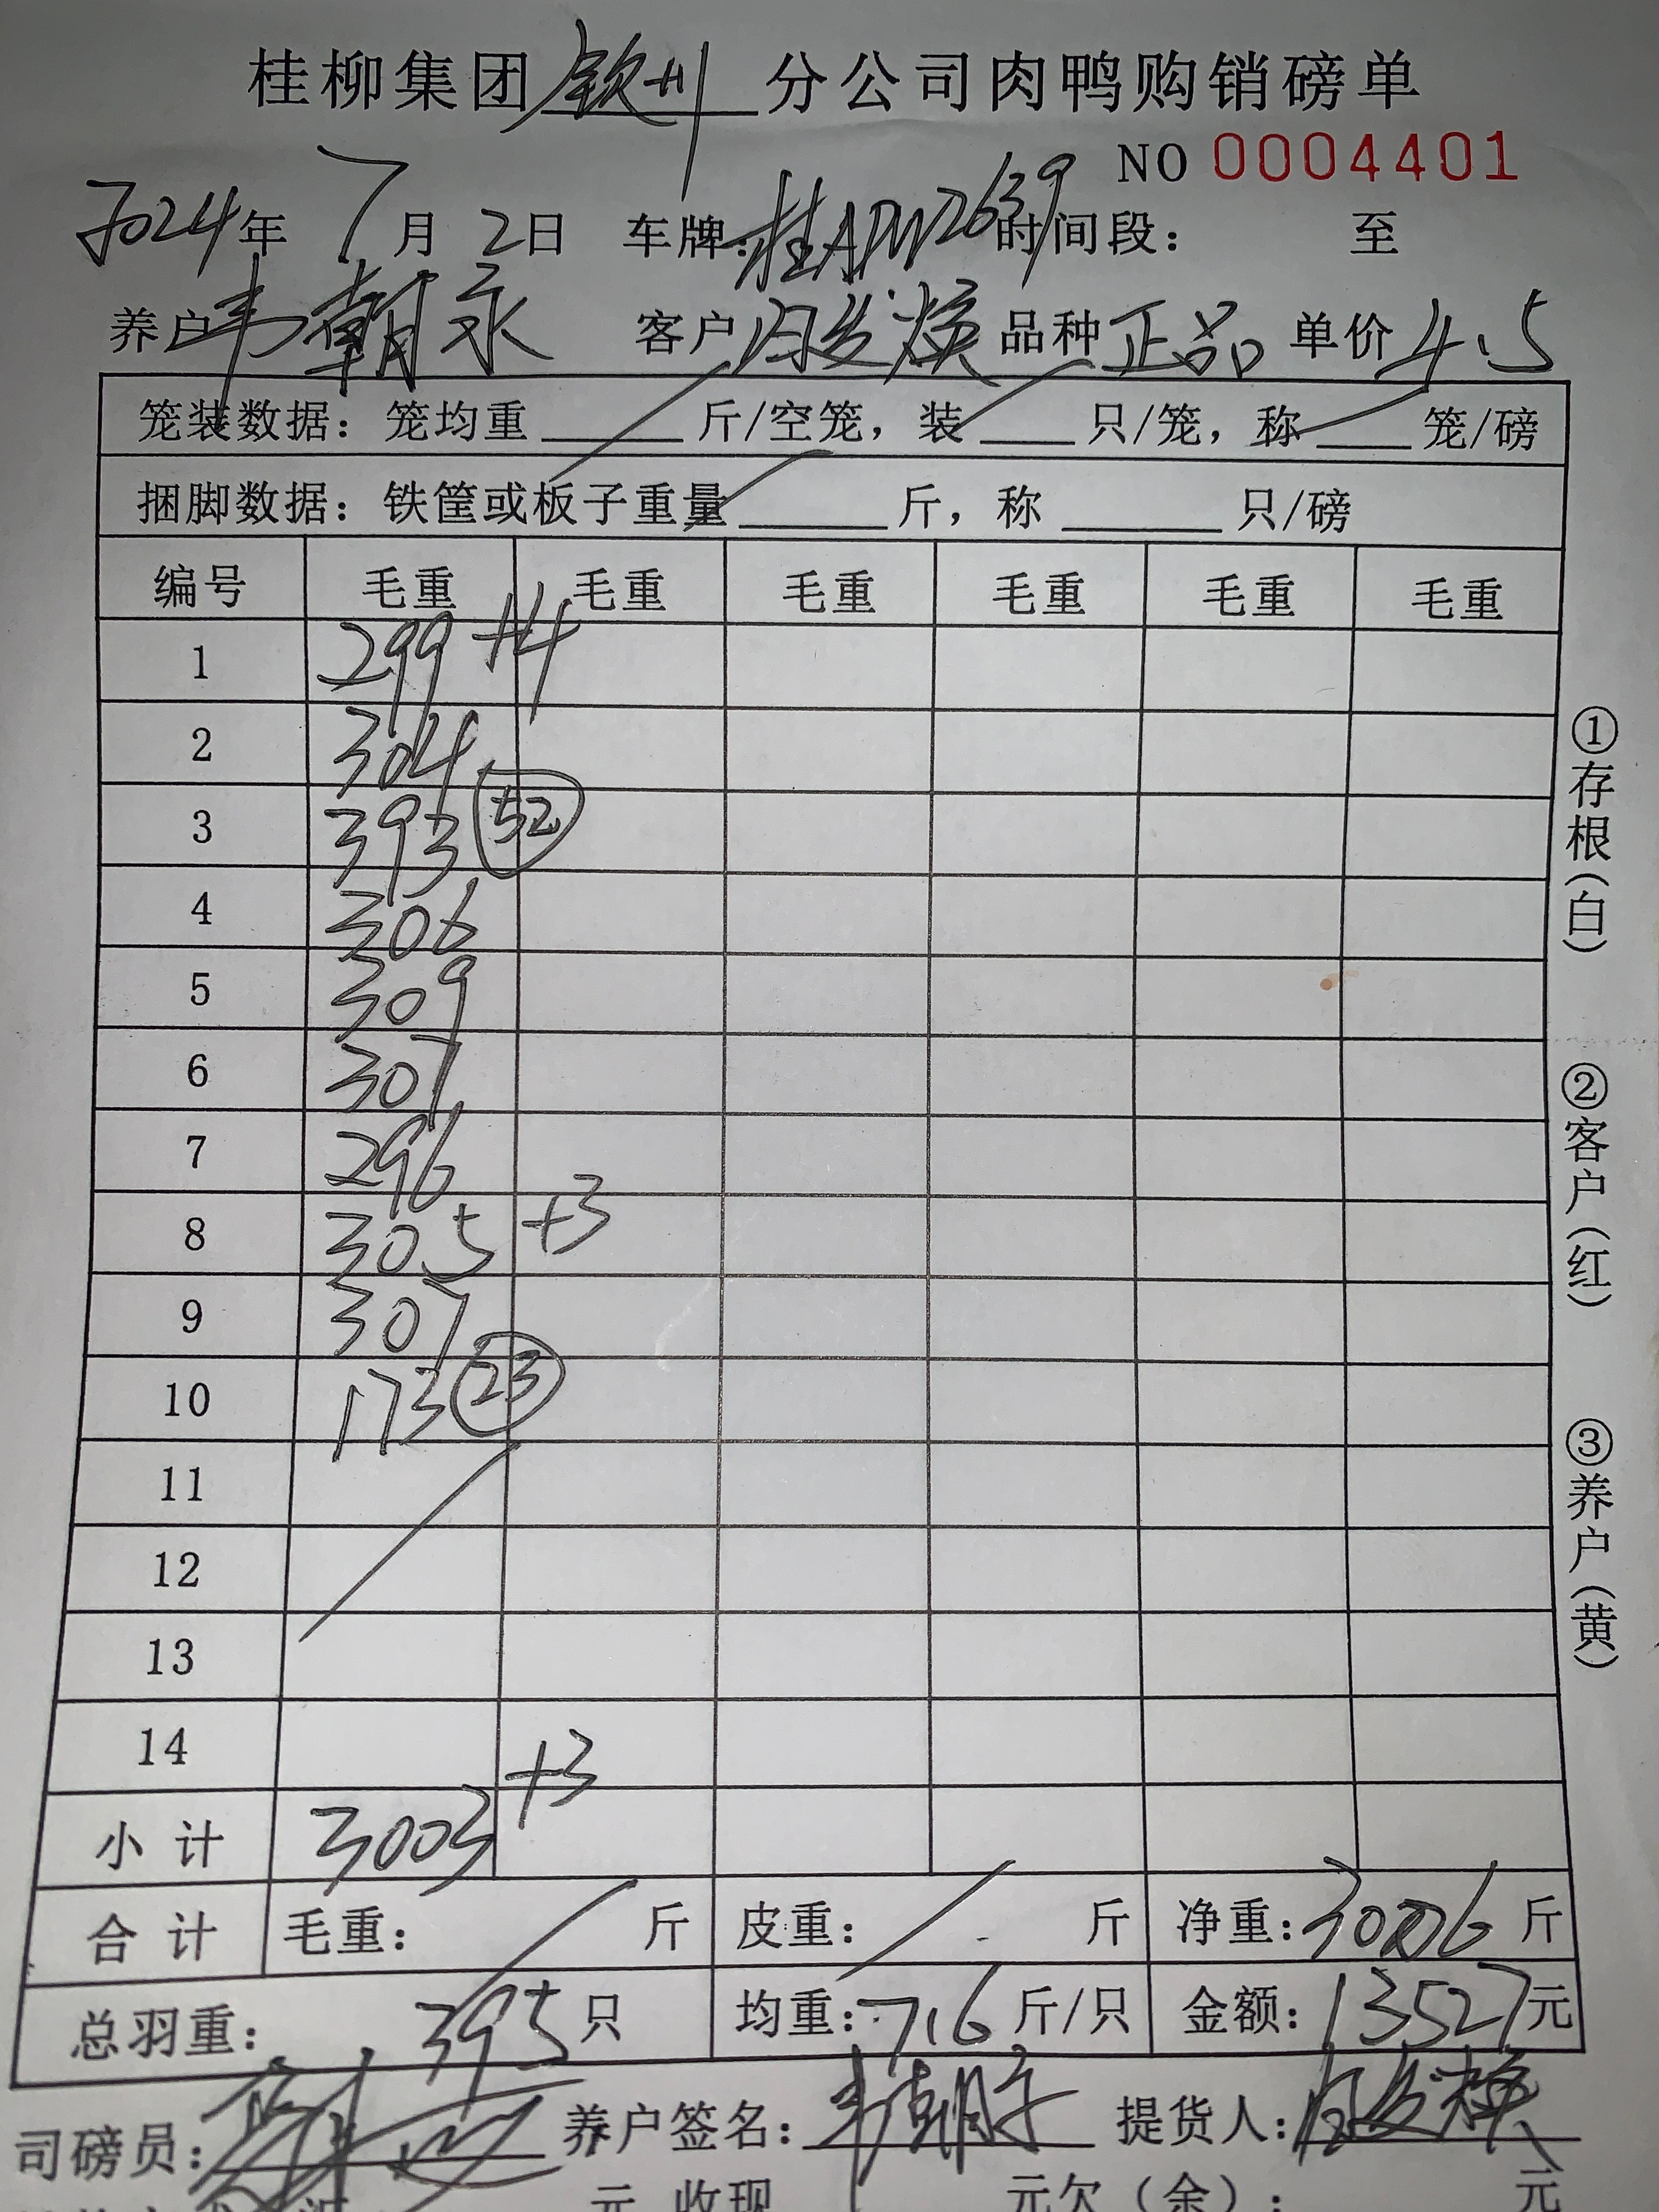 桂柳集团钦州分公司肉鸭购销磅单
NO 0004401
2024年 7月 2日 车牌:桂APW2639 时间段: 至
养户韦朝永 客户闭发焕 品种正品 单价4.5
笼装数据: 笼均重 斤/空笼, 装 只/笼, 称 笼/磅
捆脚数据: 铁筐或板子重量 斤, 称 只/磅
编号 毛重 毛重 毛重 毛重 毛重 毛重
1 299 +4
2 304
3 393 52
4 306
5 309
6 307
7 296
8 305 +3
9 307
10 173 23
11
12
13
14
+3
小计 3003
合计 毛重: 斤 皮重: 斤 净重:3006斤
总羽重: 395只 均重:7.6斤/只 金额:13527元
司磅员: 养户签名:韦朝永 提货人:闭发焕
元 收现 元欠(余): 元
①存根(白)
②客户(红)
③养户(黄)